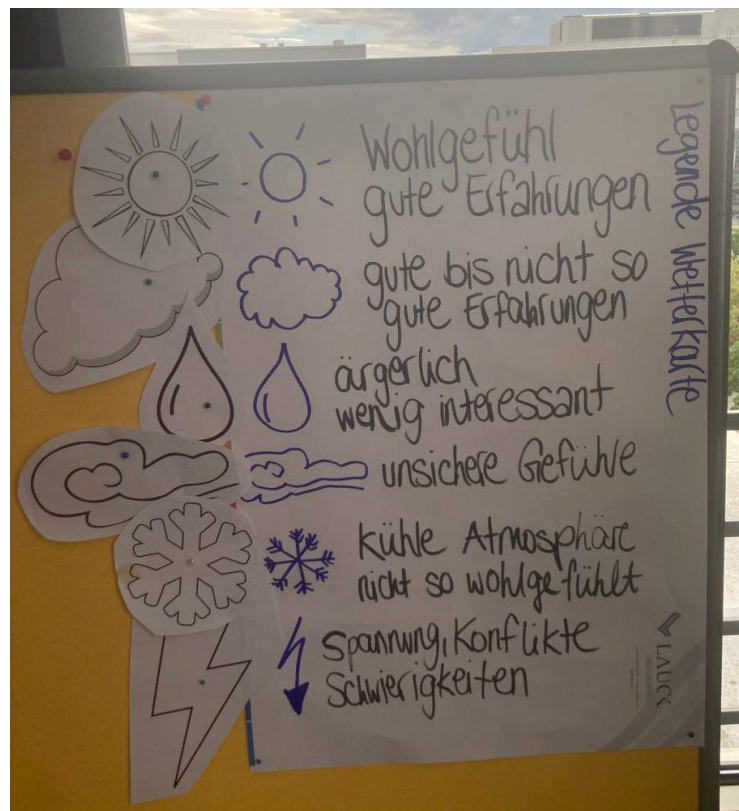 Legende Wetterkarte
Wohlgefühl
gute Erfahrungen
gute bis nicht so
gute Erfahrungen
ärgerlich
wenig interessant
unsichere Gefühle
kühle Atmosphäre
nicht so wohlgefühlt
Spannung, Konflikte
Schwierigkeiten
LAUCK